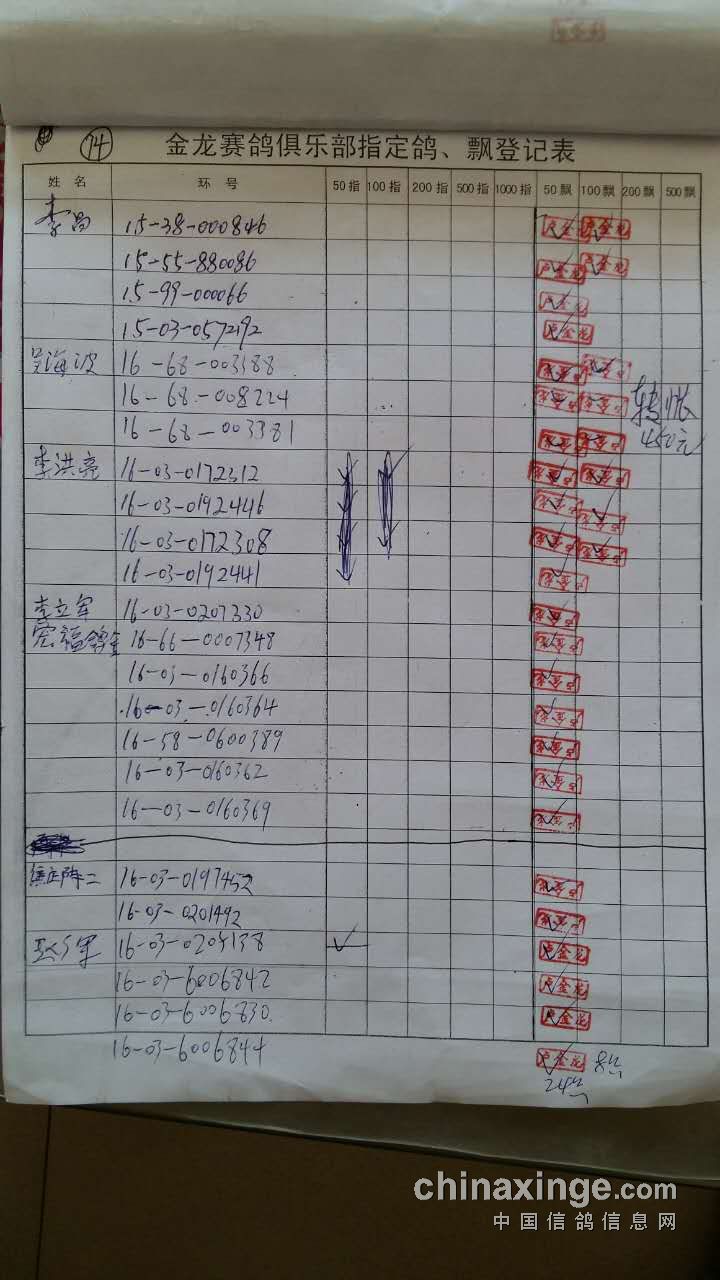 74
金龙赛鸽俱乐部指定鸽、飘登记表
姓 名 环 号 50指 100指 200指 500指 1000指 50飘 100飘 200飘 500飘
李昌 15-38-000846
15-55-880086
15-99-000066
15-03-057292
吴海波 16-68-003388
16-68-008224
16-68-003381
转账
450元
李洪亮 16-03-0172312
16-03-0192446
16-03-0172308
16-03-0192441
李立军 16-03-0207330
宏福鸽舍 16-66-0007348
16-03-0160366
16-03-0160364
16-58-0600389
16-03-0160362
16-03-0160369
16-03-0197452
16-03-0201492
16-03-0204138
16-03-6006842
16-03-6006830
16-03-6006844
金龙
chinaxinge.com
中国信鸽信息网